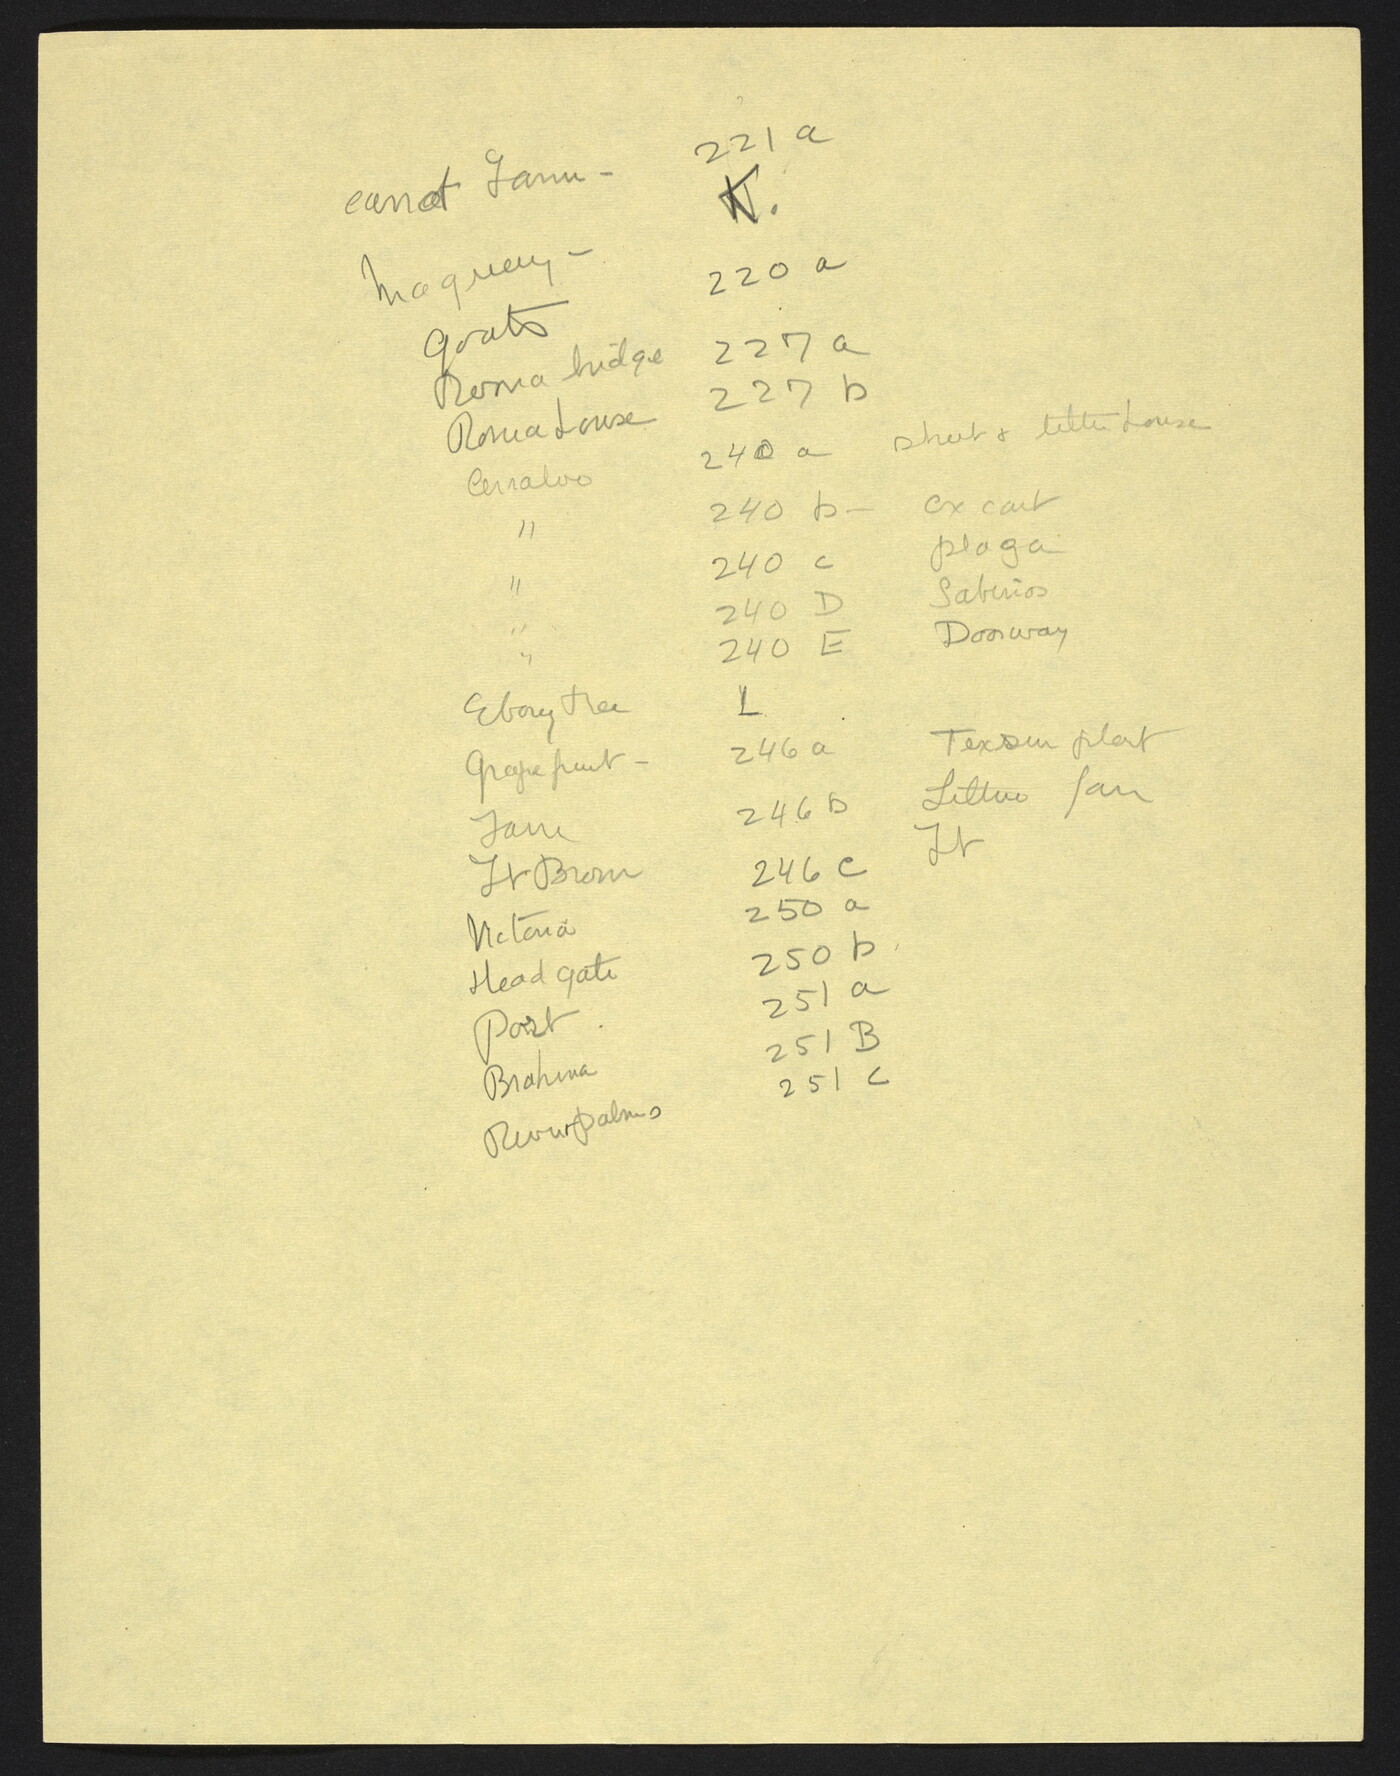 carrot Farm - 221 a
Maguey - K.
goats 220 a
Roma bridge 227 a
Roma House 227 b
Cerralvo 240 a street & little house
" 240 b - ox cart
" 240 c plaza
" 240 D Sabinos
" 240 E Doorway
Ebony tree L
Grapefruit - 246 a Texsun plant
Farm 246 b Little farm
Ft Brown 246 c Ft
Victoria 250 a
Head gate 250 b
Port 251 a
Brahma 251 B
River palms 251 c